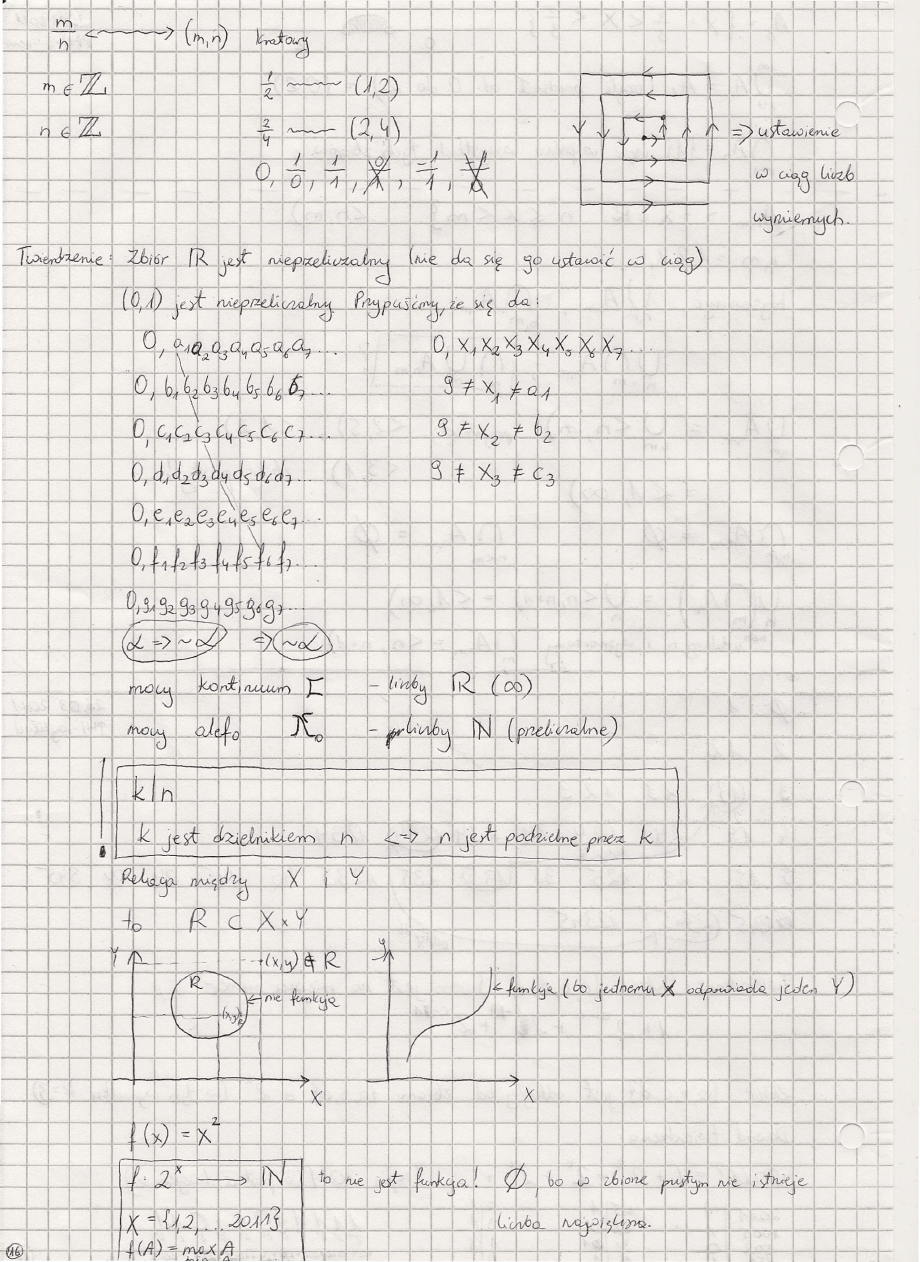 m/n ⟷ (m,n) kratowy
m ∈ ℤ 1/2 ~~~ (1,2)
n ∈ ℤ 2/4 ~~~ (2,4) => ustawienie
0, 1/0, 1/1, 0/1, -1/1, -1/0 w ciąg liczb
wymiernych.
Twierdzenie: Zbiór ℝ jest nieprzeliczalny (nie da się go ustawić w ciąg)
(0,1) jest nieprzeliczalny. Przypuśćmy, że się da:
0, a1a2a3a4a5a6a7... 0, x1x2x3x4x5x6x7...
0, b1b2b3b4b5b6b7... 9 ≠ x1 ≠ a1
0, c1c2c3c4c5c6c7... 9 ≠ x2 ≠ b2
0, d1d2d3d4d5d6d7... 9 ≠ x3 ≠ c3
0, e1e2e3e4e5e6e7...
0, f1f2f3f4f5f6f7...
0, g1g2g3g4g5g6g7...
α => ~α => ~α
mocy kontinuum - liczby ℝ (∞)
mocy alef0 ℵ0 - liczby ℕ (przeliczalne)
! k|n
k jest dzielnikiem n <=> n jest podzielne przez k
Relacja między X i Y
to R ⊂ X×Y
Y (x,y) ∉ R y
R nie funkcja funkcja (bo jednemu X odpowiada jeden Y)
(x,y)
X X
f(x) = x²
f: 2^x ⟶ ℕ to nie jest funkcja! ∅, bo w zbiorze pustym nie istnieje
X = {1,2,...2011} liczba największa.
f(A) = max A
min A
16